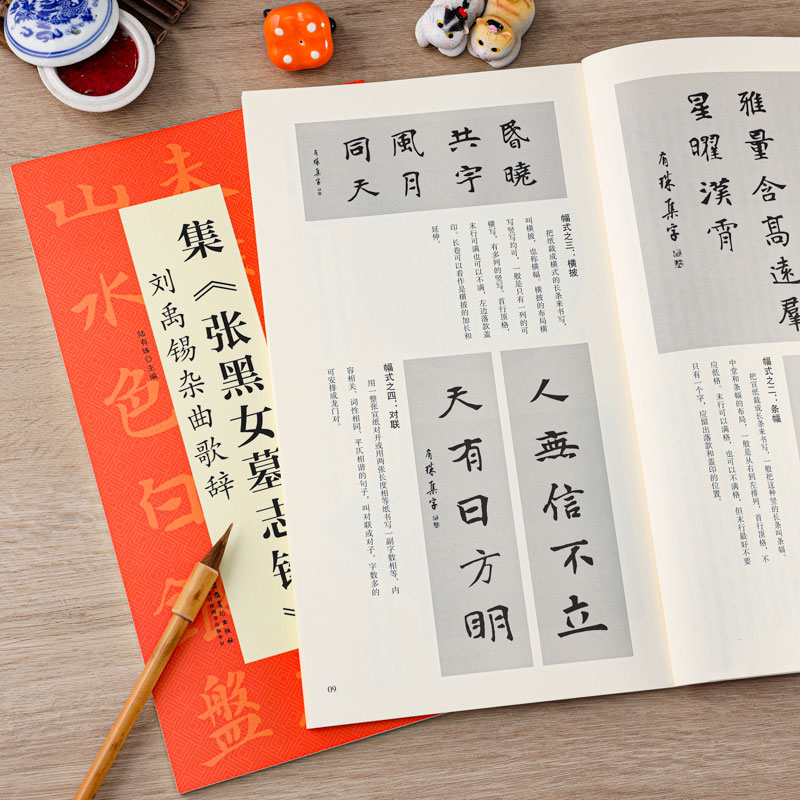 雅量含高遠羣
星曜漢霄
有珠集字
幅式之二：条幅
把宣纸裁成长条来书写，一般把这种竖的长条叫条幅。
中堂和条幅的布局，一般是从右到左排列，首行顶格，不
应低格。末行可以满格，也可以不满格，但末行最好不要
只有一个字，应留出落款和盖印的位置。
昏曉
共宇
風月
同天
有珠集字
幅式之三：横披
把纸裁成横式的长条来书写，
叫横披，也称横幅。横披的布局横
写竖写均可，一般是只有一列的可
横写，有多列的竖写。首行顶格，
末行可满也可以不满，左边落款盖
印。长卷可以看作是横披的加长和
延伸。
人無信不立
天有日方明
有珠集字
幅式之四：对联
用一整张宣纸对开或用两张长度相等纸书写一副字数相等、内
容相关、词性相同、平仄相谐的句子，叫对联或对子。字数多的
可安排成龙门对。
09
集《张黑女墓志铭》
刘禹锡杂曲歌辞
陆有珠 主编
未
山水色白银盘